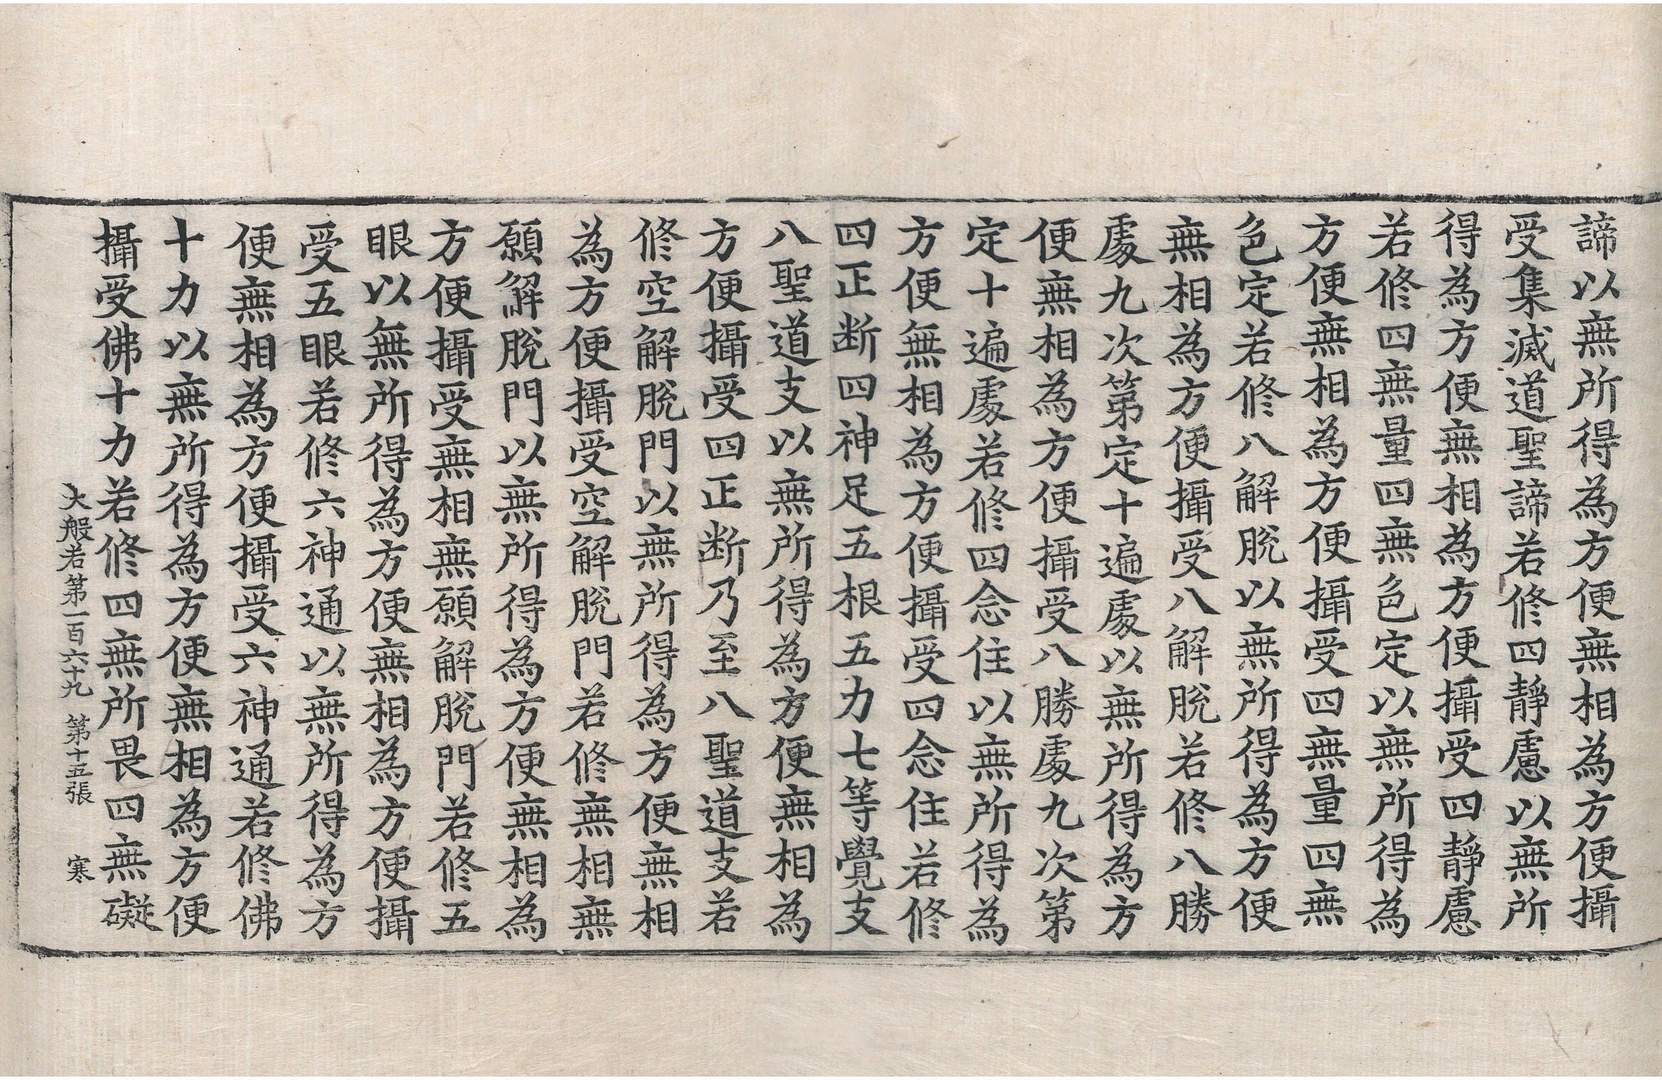 諦以無所得為方便無相為方便攝
受集滅道聖諦若修四靜慮以無所
得為方便無相為方便攝受四靜慮
若修四無量四無色定以無所得為
方便無相為方便攝受四無量四無
色定若修八解脫以無所得為方便
無相為方便攝受八解脫若修八勝
處九次第定十遍處以無所得為方
便無相為方便攝受八勝處九次第
定十遍處若修四念住以無所得為
方便無相為方便攝受四念住若修
四正断四神足五根五力七等覺支
八聖道支以無所得為方便無相為
方便攝受四正断乃至八聖道支若
修空解脫門以無所得為方便無相
為方便攝受空解脫門若修無相無
願解脫門以無所得為方便無相為
方便攝受無相無願解脫門若修五
眼以無所得為方便無相為方便攝
受五眼若修六神通以無所得為方
便無相為方便攝受六神通若修佛
十力以無所得為方便無相為方便
攝受佛十力若修四無所畏四無礙
大般若第一百六十九 第十五張 寒